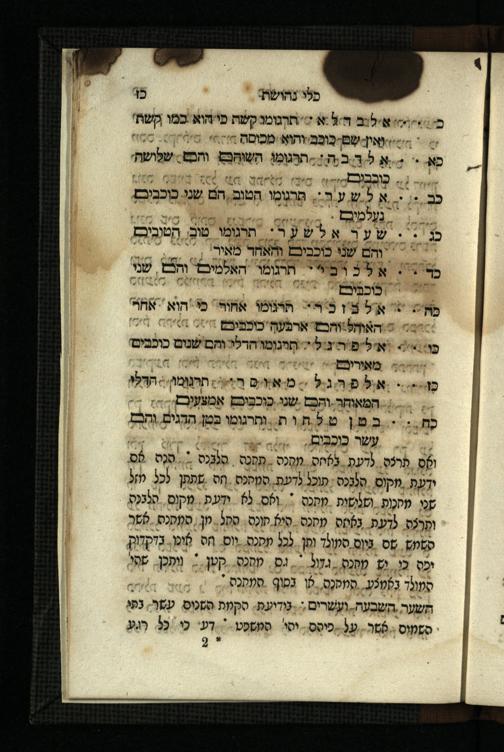 כלי נחושת כז
כ · · אלבהלא · תרגומו קשת כי הוא כמו קשת
ואין שם כוכב והוא מכוסה
כא · · אלדבח · תרגומו השוחט והם שלושה
כוכבים
כב · · אלשער · תרגומו הטוב הם שני כוכבים
נעלמים
כג · · שער אלשער · תרגומו טוב הטובים
והם שני כוכבים והאחד מאיר
כד · · אלכובי · תרגומו האלמים והם שני
כוכבים
כה · · אלבוכר · תרגומו אחור כי הוא אחר
האוהל והם ארבעה כוכבים
כו · · אלפרגל · תרגומו הדלי והם שנים כוכבים
מאירים
כז · · אלפרגל מאוסר · תרגומו הדלי
המאוחר והם שני כוכבים אמצעים
כח · · בטן טלחות ותרגומו בטן הדגים והם
עשר כוכבים
ואם תרצה לדעת באיזה מחנה תחנה הלבנה · הנה אם
ידעת מקום הלבנה תוכל לדעת המחנה וזה שתתן לכל מזל
שני מחנות ושלישית מחנה · ואם לא ידעת מקום הלבנה
ותרצה לדעת באיזה מחנה היא חונה החל מן המחנה אשר
השמש שם ביום המולד ותן לכל מחנה יום וזה אינו בדקדוק
יפה כי יש מחנה גדול · גם מחנה קטן · ויתכן שהי'
המולד באמצע המחנה או בסוף המחנה ·
השער השבעה ועשרים · בידיעת הקמת השנים עשר בתי
השמים אשר על פיהם יהי' המשפט · דע כי כל רגע
2 *